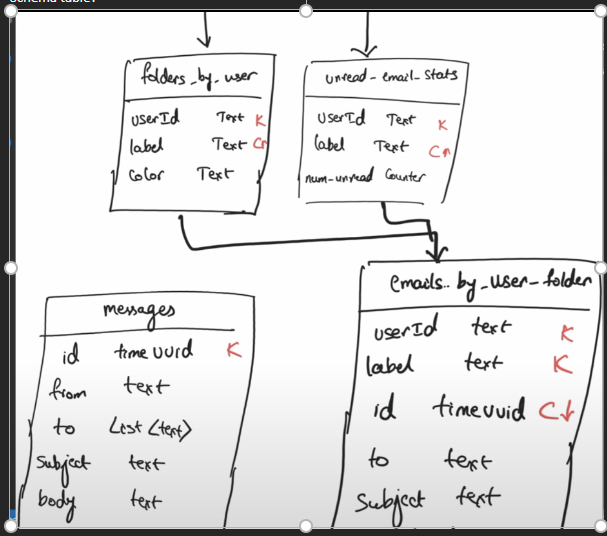 schema table?
folders_by_user
userId Text K
label Text C↑
color Text
unread_email_stats
userId Text K
label Text C↑
num_unread Counter
messages
id timeuuid K
from text
to List<text>
subject text
body text
emails_by_user_folder
userId text K
label text K
id timeuuid C↓
to text
subject text